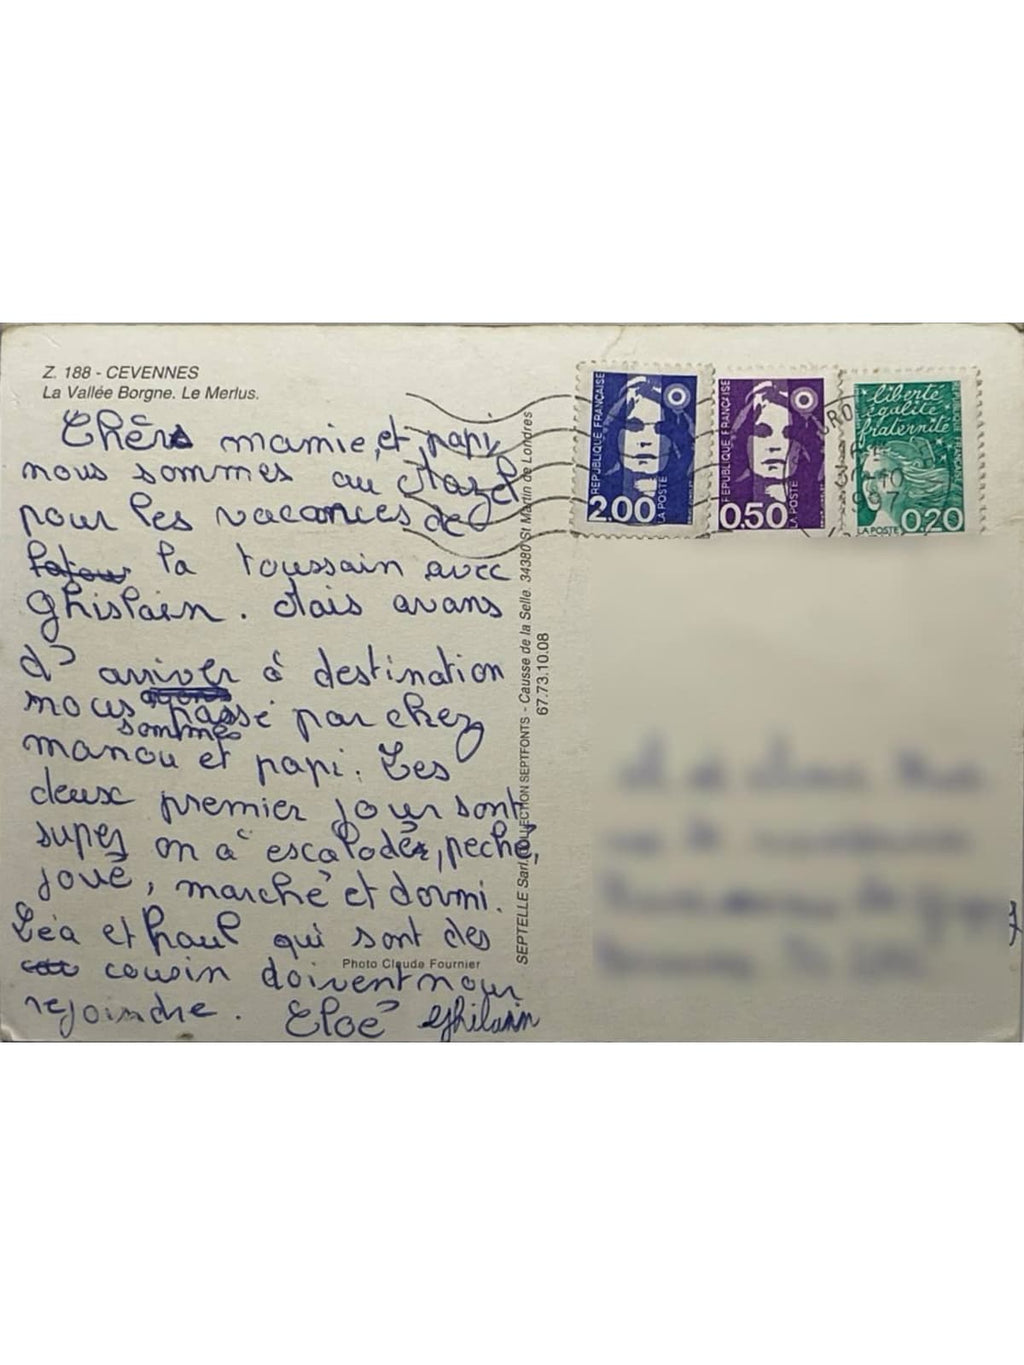 Z. 188 - CEVENNES
La Vallée Borgne. Le Merlus.
Chérs mamie, et papi
nous sommes au Mazel
pour les vacances de
la toussain avec
Ghislain. Mais avans
d'arriver à destination
nous sommes passé par chez
manou et papi. Les
deux premier jour sont
super on à escaladér, peché,
joué, marché et dormi.
Léa et Paul qui sont des
cousin doivent nous
rejoindre. Eloé Ghilain
Photo Claude Fournier
SEPTELLE Sarl. COLLECTION SEPTFONTS - Causse de la Selle. 34380 St Martin de Londres
67.73.10.08
REPUBLIQUE FRANÇAISE
2.00
LA POSTE
REPUBLIQUE FRANÇAISE
0.50
LA POSTE
liberté
égalité
fraternité
REPUBLIQUE FRANÇAISE
LA POSTE
0.20
1997